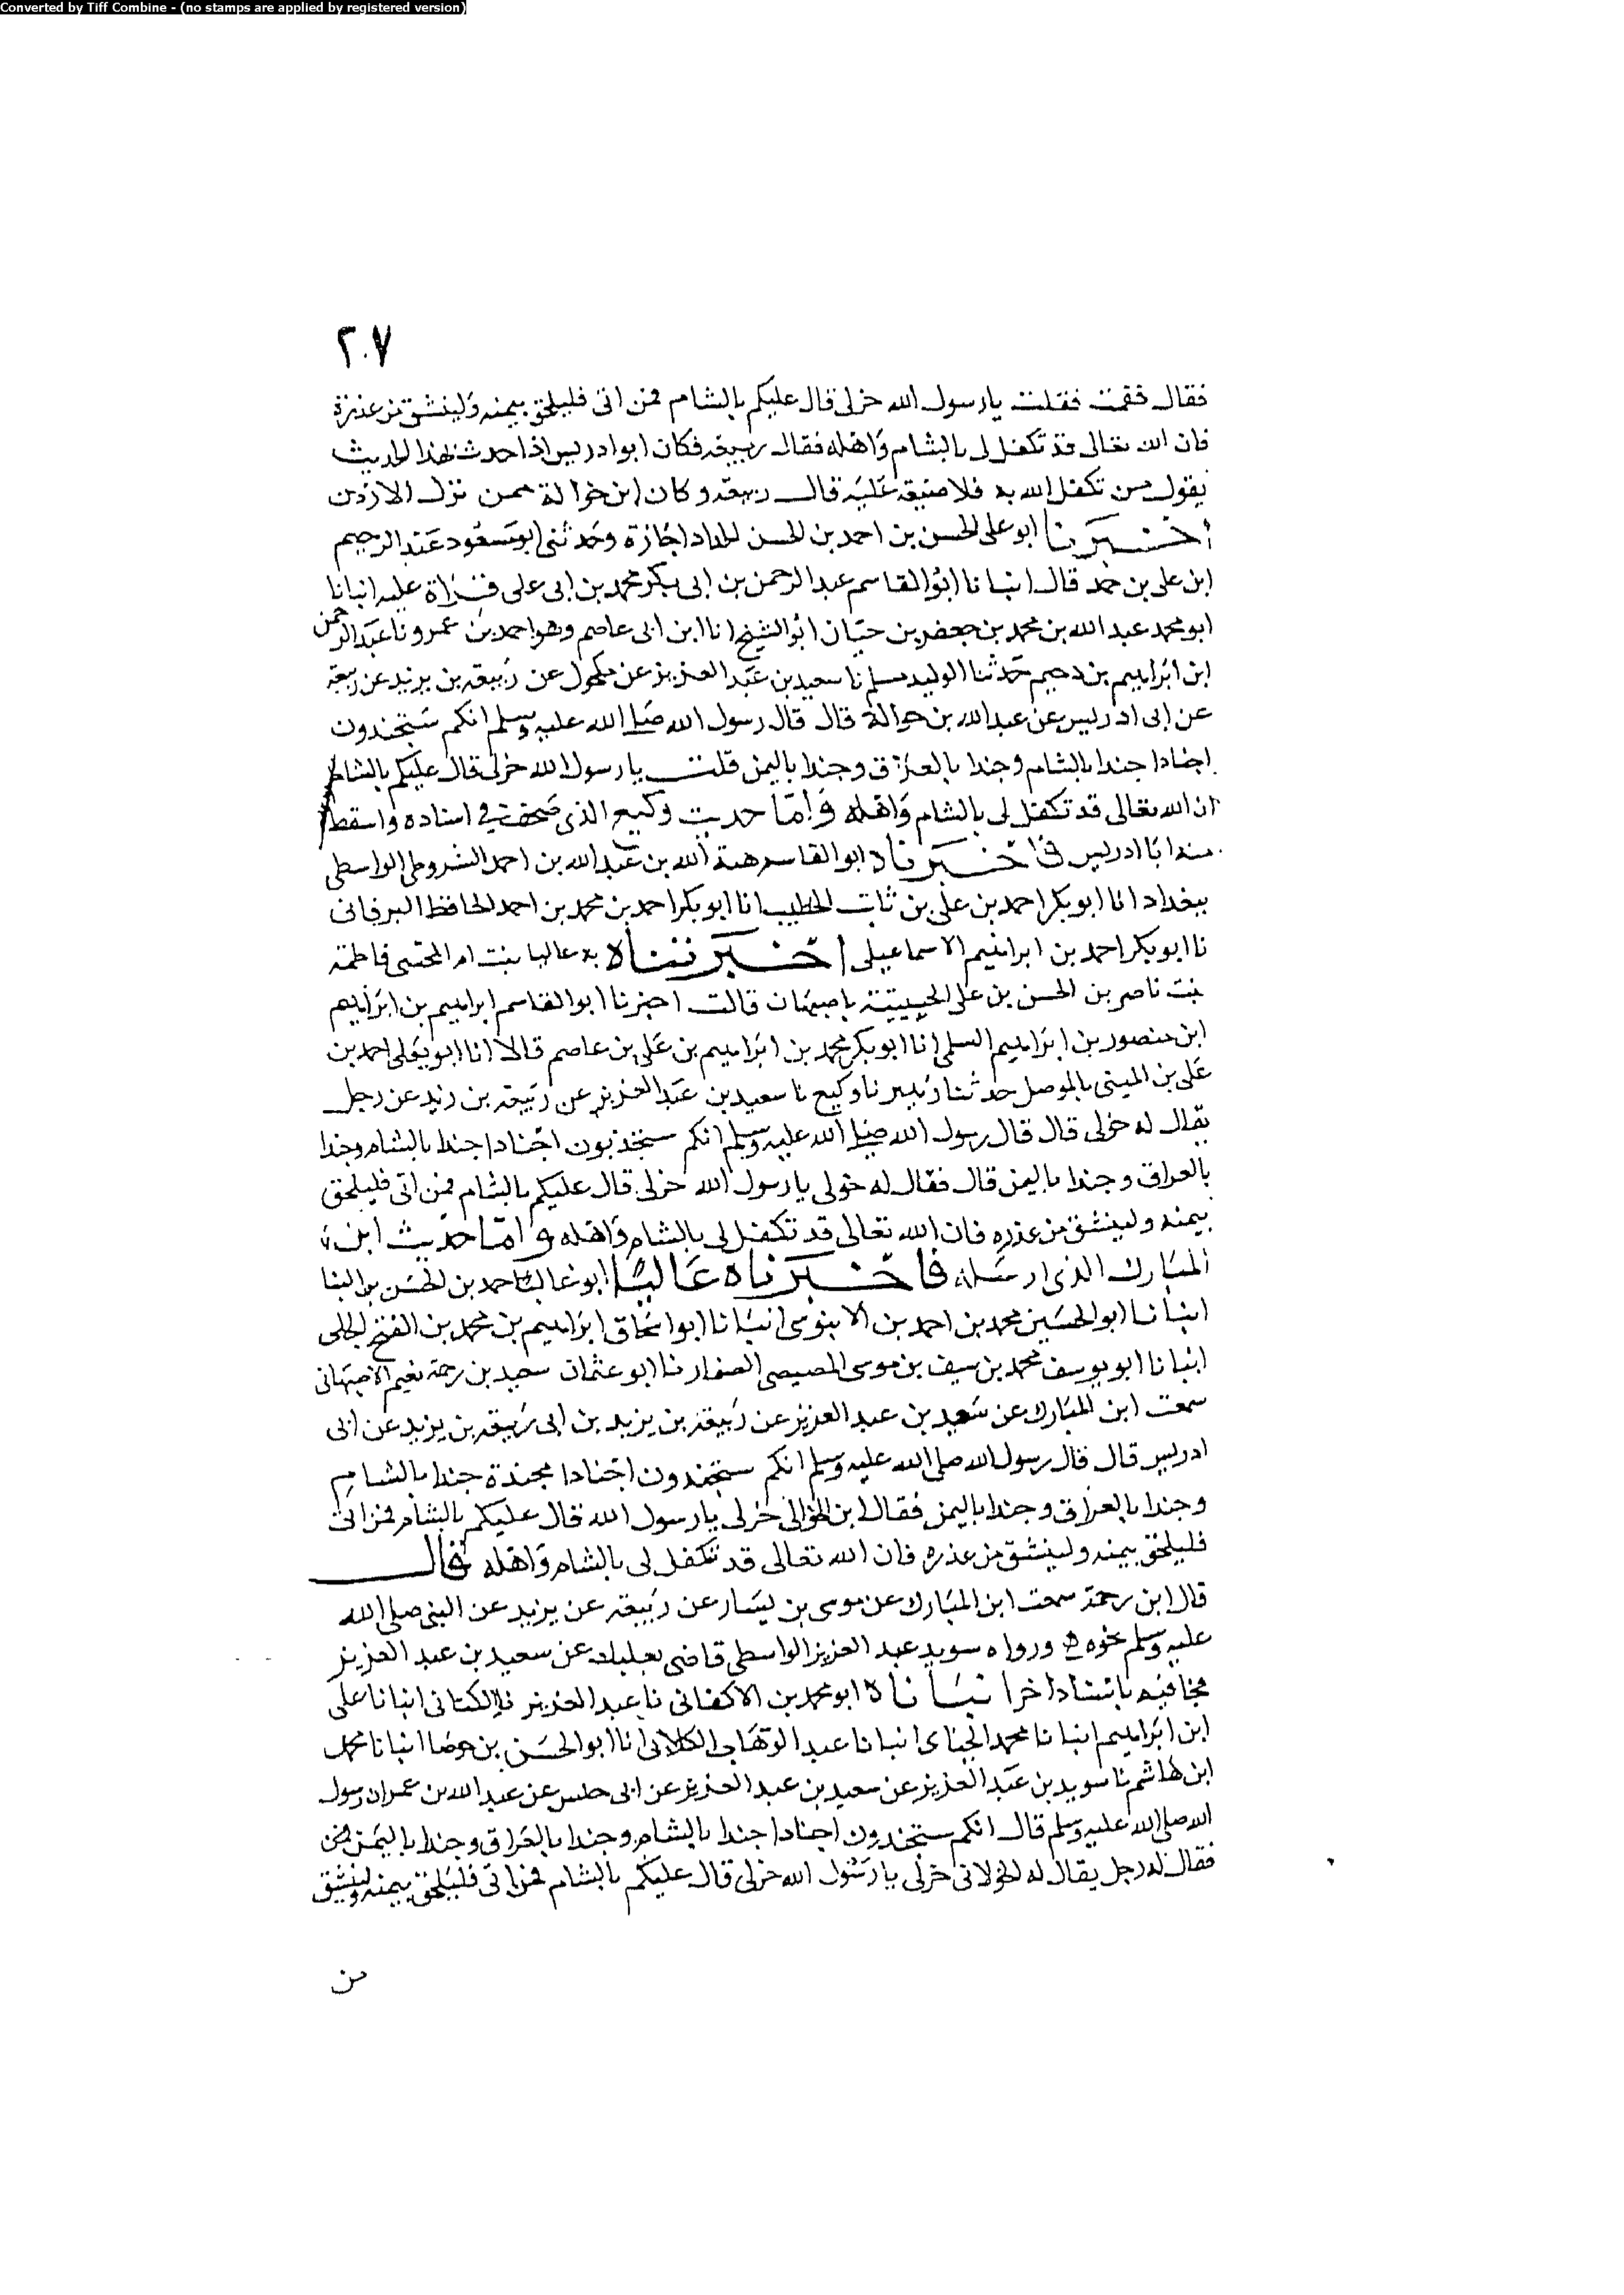 Converted by Tiff Combine - (no stamps are applied by registered version)
٢٠٧
فقال فقمت فقلت يارسول الله خرلى قال عليكم بالشام فمن اتى فليلحق بيمنه ولينشق من عذرة
فان الله تعالى قد تكفل لى بالشام واهله فقال ربيعه فكان ابوادريس اذا حدث بهذا الحديث
يقول من تكفل الله به فلاضيعة عليه قال ربيعه وكان ابن حوالة ممن نزل الاردن
أخبرنا ابو على الحسن بن احمد بن الحسن الحداد اجازة وحدثنى ابو مسعود عبد الرحيم
ابن على بن حمد قال انبانا ابو القاسم عبد الرحمن بن ابى بكر محمد بن ابى على قراة عليه انبانا
ابو محمد عبد الله بن محمد بن جعفر بن حيان ابو الشيخ انا ابن ابى عاصم وهو احمد بن عمرو نا عبد الرحمن
ابن ابراهيم بن دحيم حدثنا الوليد مسلم نا سعيد بن عبد العزيز عن مكحول عن ربيعه بن يزيد عن ربيعة
عن ابى ادريس عن عبد الله بن حوالة قال قال رسول الله صلى الله عليه وسلم انكم ستجندون
اجنادا جندا بالشام وجندا بالعراق وجندا باليمن قلت يا رسول الله خرلى قال عليكم بالشام
ان الله تعالى قد تكفل لى بالشام واهله واما حديث وكيع الذى صحف فى اسناده واسقط
منه ابا ادريس فاخبرناه ابو القاسم هبة الله بن عبد الله بن احمد الشروطى الواسطى
ببغداد انا ابو بكر احمد بن على بن ثابت الخطيب انا ابو بكر احمد بن محمد بن احمد الحافظ البرقانى
نا ابو بكر احمد بن ابراهيم الاسماعيلى اخبرتناه به عاليا بنت ام المجتبى فاطمة
بنت ناصر بن الحسن بن على الحسينية باصبهان قالت اخبرنا ابو القاسم ابراهيم بن ابراهيم
ابن منصور بن ابراهيم السلمى انا ابو بكر محمد بن ابراهيم بن على بن عاصم قالا انا ابو يعلى احمد بن
على بن المثنى بالموصل حدثنا زهير نا وكيع نا سعيد بن عبد العزيز عن ربيعه بن زيد عن رجل
يقال له خولى قال قال رسول الله صلى الله عليه وسلم انكم اجنادا جندا بالشام وجندا
بالعراق وجندا باليمن قال فقال له خولى يا رسول الله خرلى قال عليكم بالشام فمن اتى فليلحق
بيمنه ولينشق من عذره فان الله تعالى قد تكفل لى بالشام واهله واما حديث ابن
المبارك الذى ارسله فاخبرناه عاليا ابو غالب احمد بن الحسن بن البنا
انبانا ابو الحسين محمد بن احمد بن الابنوسى انبانا ابو اسحاق ابراهيم بن محمد بن الفتح الجلى
انبانا ابو يوسف محمد بن سيف بن موسى المصيصى الصفار نا ابو عثمان سعيد بن رحمة نعيم الاصبهانى
سمعت ابن المبارك عن سعيد بن عبد العزيز عن ربيعة بن يزيد بن ابى ربيعة بن يزيد عن ابى
ادريس قال قال رسول الله صلى الله عليه وسلم انكم ستجندون اجنادا مجندة جندا بالشام
وجندا بالعراق وجندا باليمن فقال ابن الخوالى خرلى يا رسول الله قال عليكم بالشام فمن اتى
فليلحق بيمنه ولينشق من عذره فان الله تعالى قد تكفل لى بالشام واهله قال
قال ابن رحمة سمعت ابن المبارك عن موسى بن يسار عن ربيعه عن يزيد عن النبى صلى الله
عليه وسلم نحوه ورواه سويد عبد العزيز الواسطى قاضى بعلبك عن سعيد بن عبد العزيز
فجا فيه باسناد اخر انباناه ابو محمد بن الاكفانى نا عبد العزيز الكتانى انبانا على
ابن ابراهيم انبانا محمد الجناى انبانا عبد الوهاب الكلابى انا ابو الحسن بن جوصا انبانا محمد
ابن هاشم نا سويد بن عبد العزيز عن سعيد بن عبد العزيز عن ابى حلبس عن عبد الله بن عمر ان رسول
الله صلى الله عليه وسلم قال انكم ستجندون اجنادا جندا بالشام وجندا بالعراق وجندا باليمن
فقال له رجل يقال له الخولانى خرلى يا رسول الله خرلى قال عليكم بالشام فمن اتى فليلحق بيمنه ولينشق
من